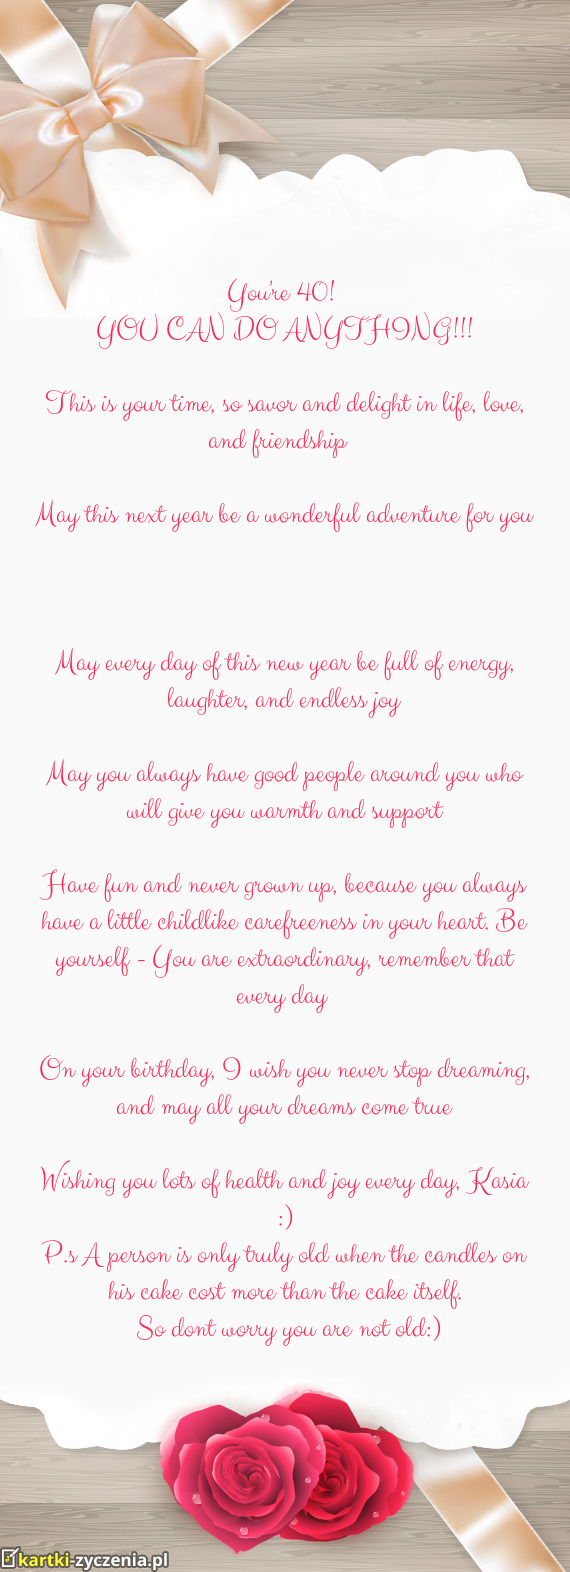 You're 40!
YOU CAN DO ANYTHING!!!
This is your time, so savor and delight in life, love,
and friendship
May this next year be a wonderful adventure for you
May every day of this new year be full of energy,
laughter, and endless joy
May you always have good people around you who
will give you warmth and support
Have fun and never grown up, because you always
have a little childlike carefreeness in your heart. Be
yourself - You are extraordinary, remember that
every day
On your birthday, I wish you never stop dreaming,
and may all your dreams come true
Wishing you lots of health and joy every day, Kasia
:)
P.s A person is only truly old when the candles on
his cake cost more than the cake itself.
So dont worry you are not old:)
kartki-zyczenia.pl